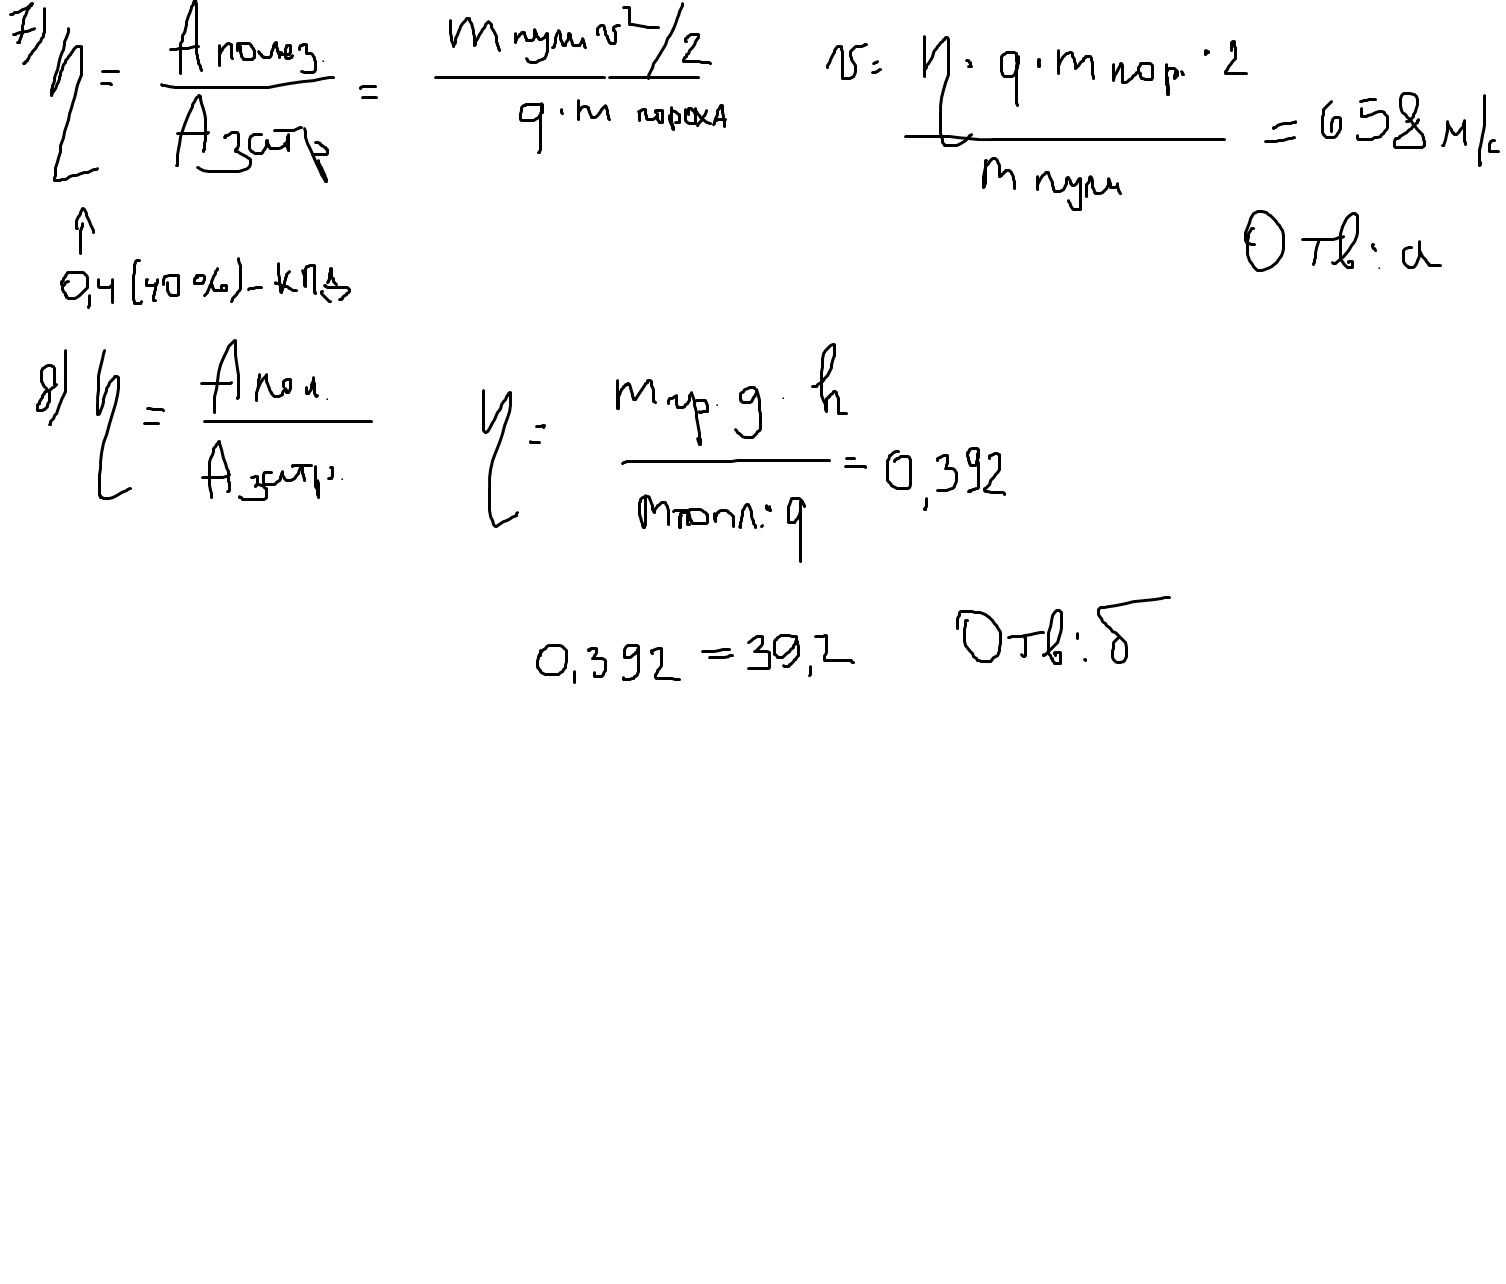 7) η = A полез. / A затр = m пули v²/2 / q · m пороха
v = η · q · m пор. · 2 / m пули = 658 м/с
Отв: а
↑
0,4 (40%) - КПД
8) η = A пол. / A затр. η = m гр. g · h / m топл. · q = 0,392
0,392 = 39,2 Отв: б